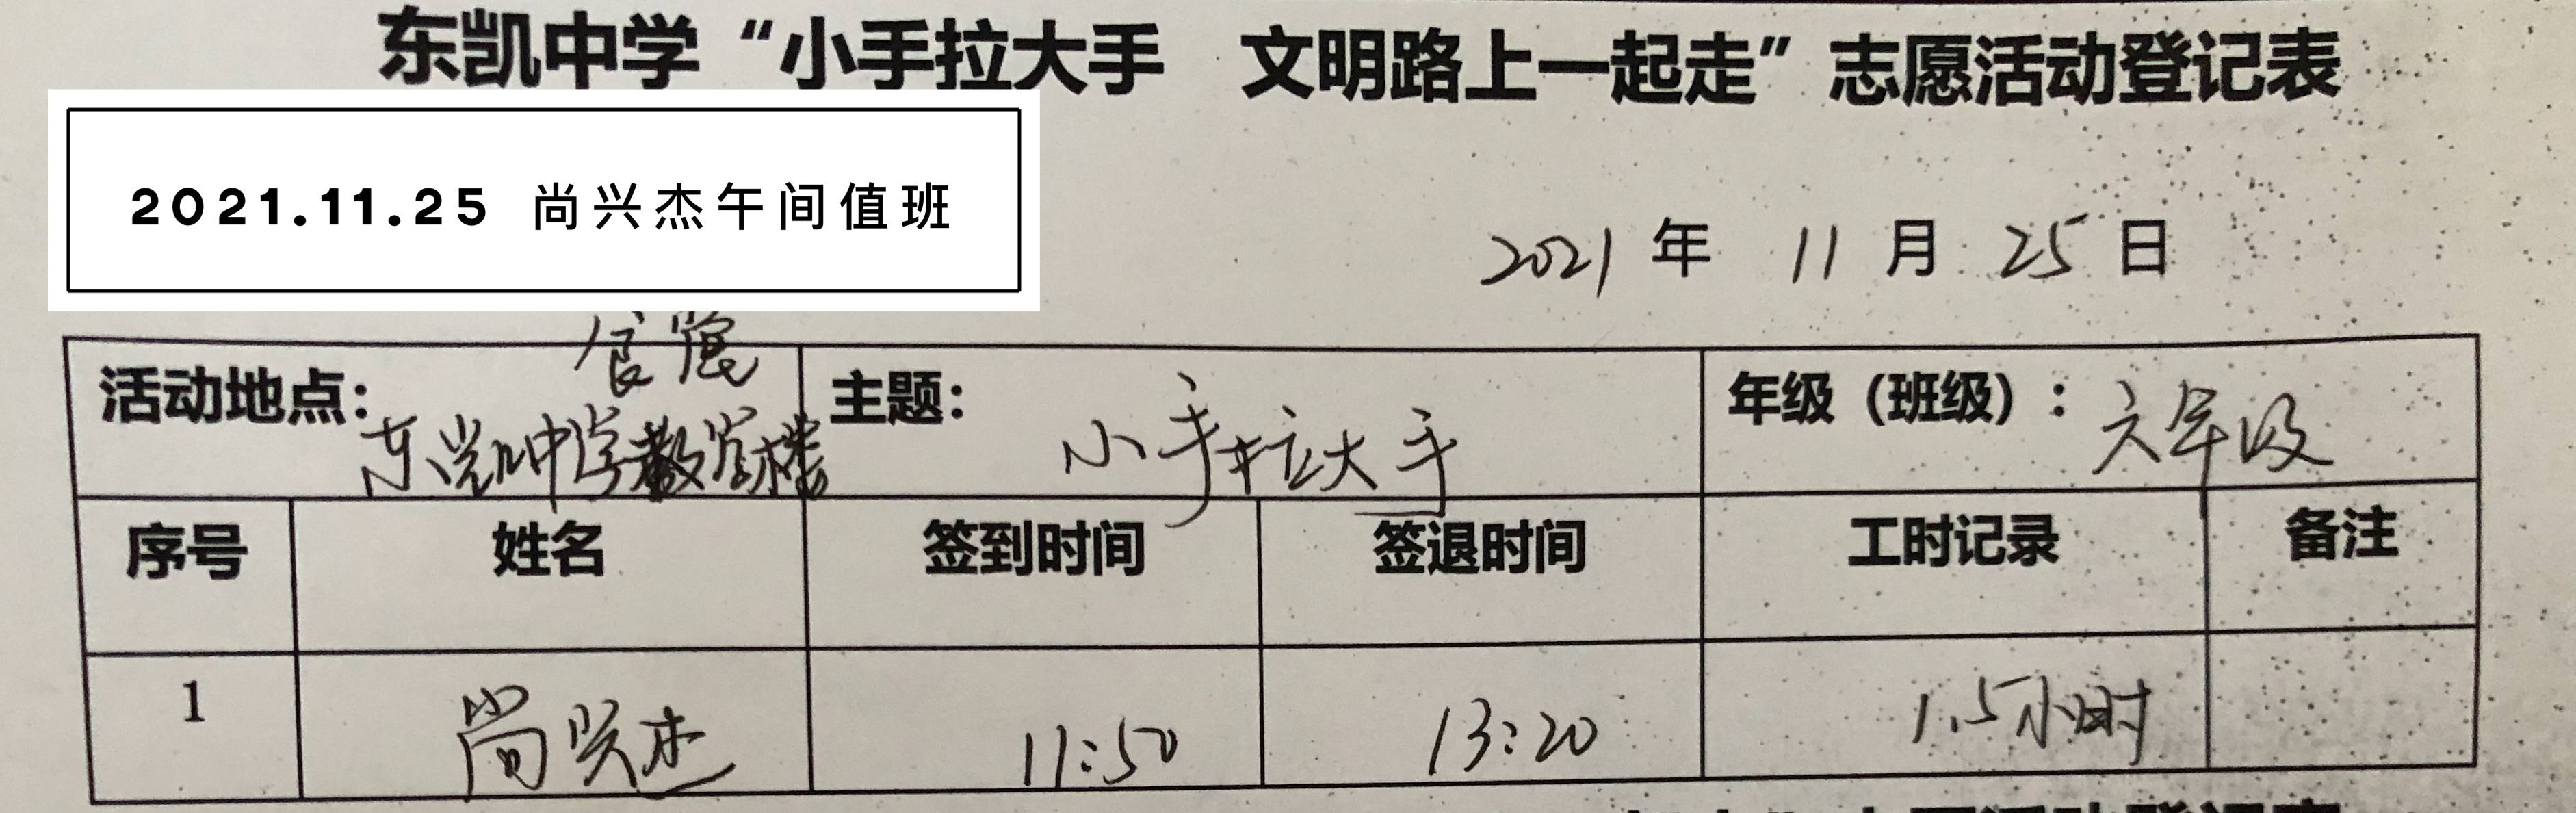 东凯中学“小手拉大手 文明路上一起走”志愿活动登记表
2021.11.25 尚兴杰午间值班
2021 年 11 月 25 日
活动地点： 食堂 东凯中学教学楼 主题： 小手拉大手 年级（班级）： 六年级
序号 姓名 签到时间 签退时间 工时记录 备注
1 尚兴杰 11:50 13:20 1.5小时